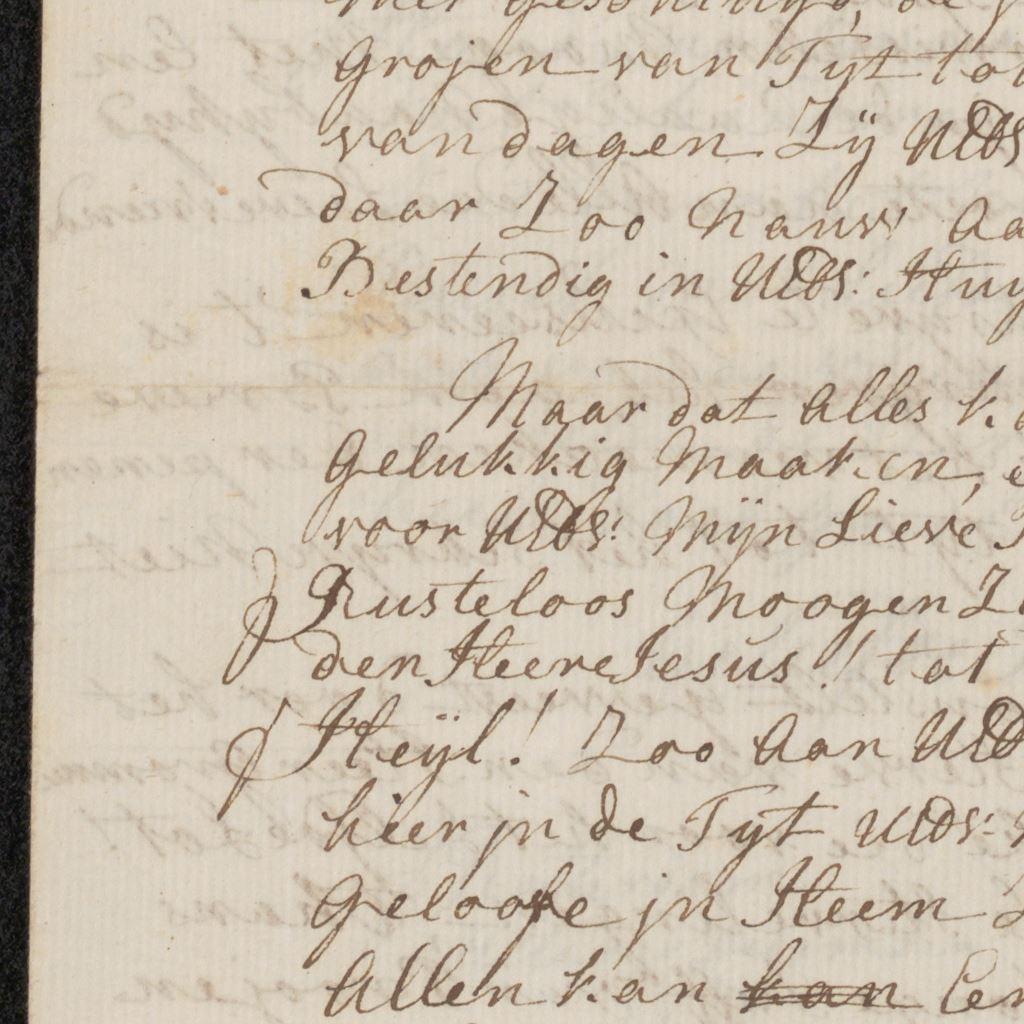 grojen van Tyt tot
van dagen Zÿ UEds
daar Zoo Nauw Aa
Bestendig in UEds: Huy
Maar dat Alles k
gelukkig Maaken,
voor UEds: Mÿn Lieve
Rusteloos Moogen Z
den Heere Jesus! tot
Heÿl! Zoo Aan UEd
hier jn de Tyt UEds:
geloofe jn Heem
Allen kan kan Een